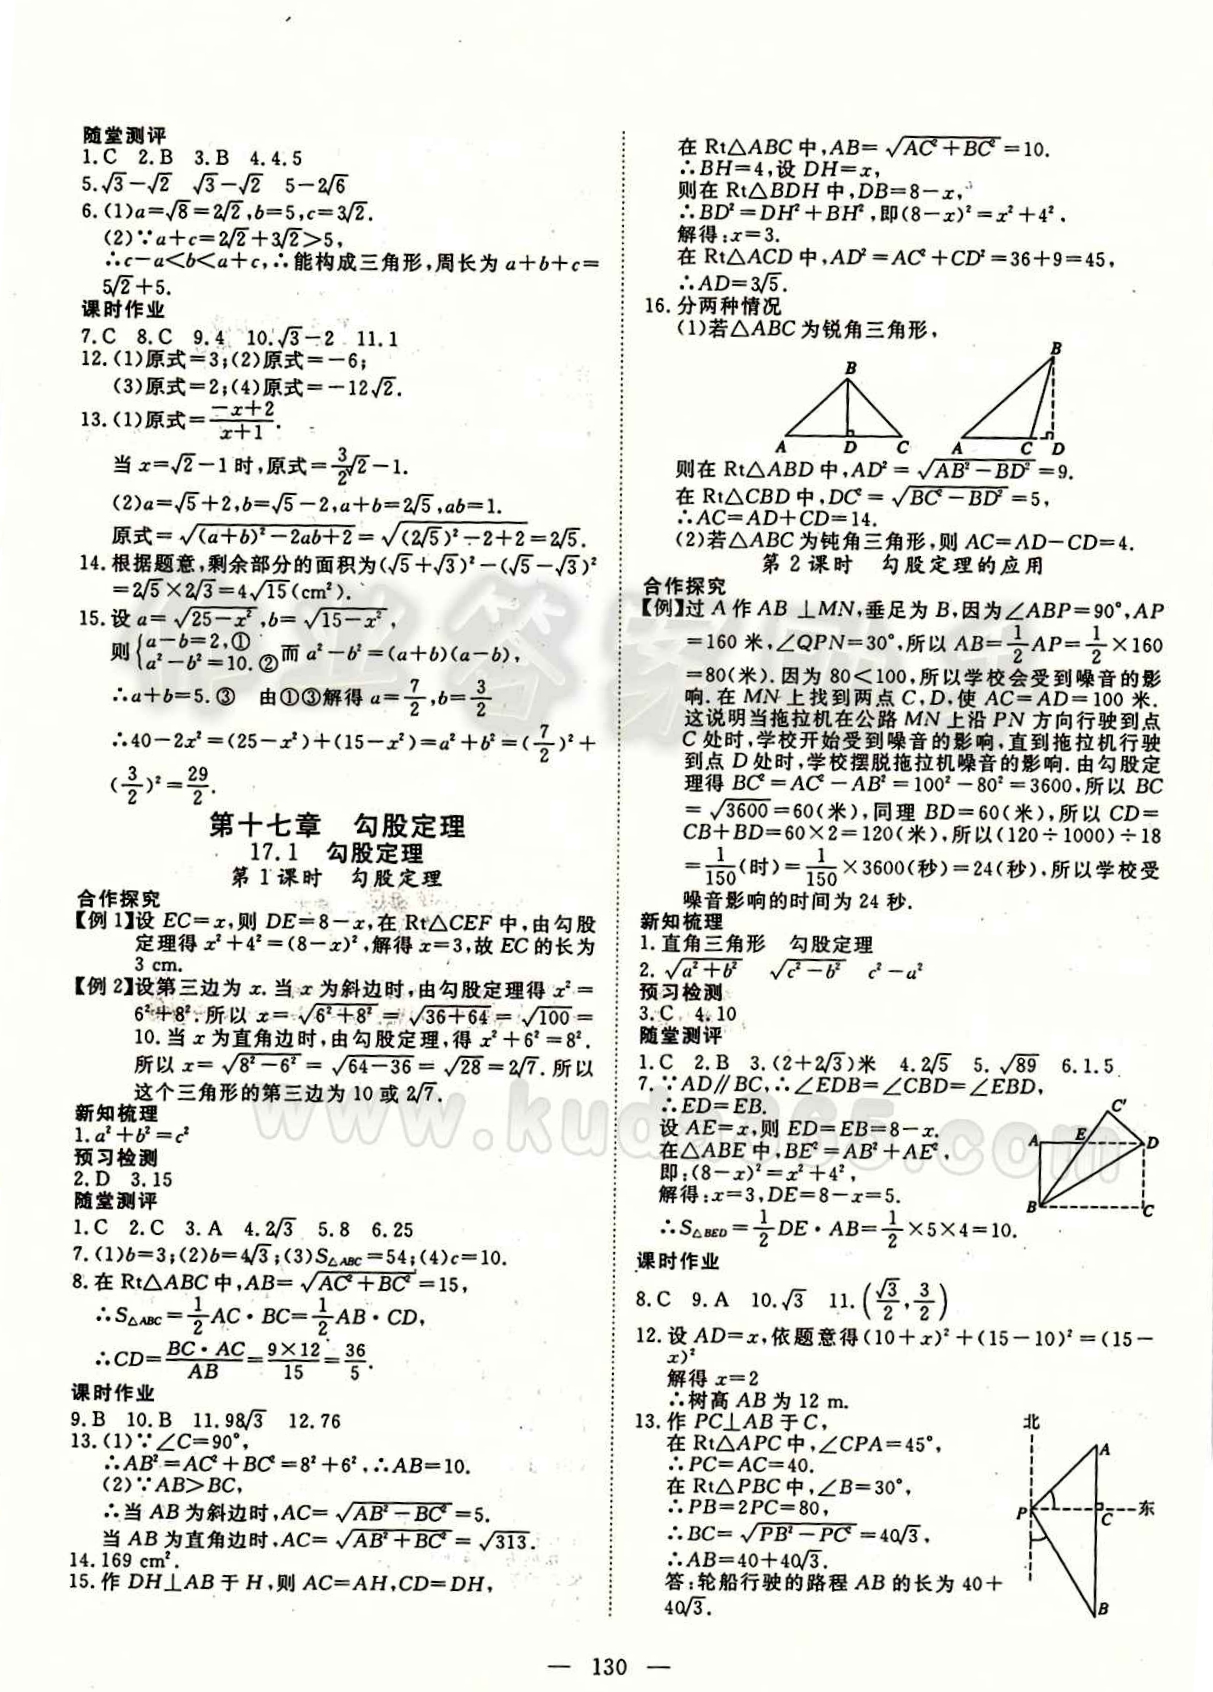 随堂测评
1.C 2.B 3.B 4.4.5
5.√3－√2 √3－√2 5－2√6
6.(1)a=√8=2√2,b=5,c=3√2.
(2)∵a+c=2√2+3√2>5,
∴c－a<b<a+c,∴能构成三角形,周长为a+b+c=
5√2+5.
课时作业
7.C 8.C 9.4 10.√3－2 11.1
12.(1)原式=3;(2)原式=－6;
(3)原式=2;(4)原式=－12√2.
13.(1)原式=(－x+2)/(x+1).
当x=√2－1时,原式=3/2√2－1.
(2)a=√5+2,b=√5－2,a+b=2√5,ab=1.
原式=√((a+b)²－2ab+2)=√((2√5)²－2+2)=2√5.
14.根据题意,剩余部分的面积为(√5+√3)²－(√5－√3)²
=2√5×2√3=4√15(cm²).
15.设a=√(25－x²),b=√(15－x²),
则{a－b=2,① a²－b²=10.② 而a²－b²=(a+b)(a－b),
∴a+b=5.③ 由①③解得a=7/2,b=3/2
∴40－2x²=(25－x²)+(15－x²)=a²+b²=(7/2)²+
(3/2)²=29/2.
第十七章 勾股定理
17.1 勾股定理
第1课时 勾股定理
合作探究
【例1】设EC=x,则DE=8－x,在Rt△CEF中,由勾股
定理得x²+4²=(8－x)²,解得x=3,故EC的长为
3 cm.
【例2】设第三边为x.当x为斜边时,由勾股定理得x²=
6²+8².所以x=√(6²+8²)=√(36+64)=√100=
10.当x为直角边时,由勾股定理,得x²+6²=8².
所以x=√(8²－6²)=√(64－36)=√28=2√7.所以
这个三角形的第三边为10或2√7.
新知梳理
1.a²+b²=c²
预习检测
2.D 3.15
随堂测评
1.C 2.C 3.A 4.2√3 5.8 6.25
7.(1)b=3;(2)b=4√3;(3)S△ABC=54;(4)c=10.
8.在Rt△ABC中,AB=√(AC²+BC²)=15,
∴S△ABC=1/2AC·BC=1/2AB·CD,
∴CD=(BC·AC)/AB=(9×12)/15=36/5.
课时作业
9.B 10.B 11.98√3 12.76
13.(1)∵∠C=90°,
∴AB²=AC²+BC²=8²+6²,∴AB=10.
(2)∵AB>BC,
∴当AB为斜边时,AC=√(AB²－BC²)=5.
当AB为直角边时,AC=√(AB²+BC²)=√313.
14.169 cm².
15.作DH⊥AB于H,则AC=AH,CD=DH,
在Rt△ABC中,AB=√(AC²+BC²)=10.
∴BH=4,设DH=x,
则在Rt△BDH中,DB=8－x,
∴BD²=DH²+BH²,即(8－x)²=x²+4².
解得:x=3.
在Rt△ACD中,AD²=AC²+CD²=36+9=45,
∴AD=3√5.
16.分两种情况
(1)若△ABC为锐角三角形,
B
A D C
B
A C D
则在Rt△ABD中,AD²=√(AB²－BD²)=9.
在Rt△CBD中,DC²=√(BC²－BD²)=5,
∴AC=AD+CD=14.
(2)若△ABC为钝角三角形,则AC=AD－CD=4.
第2课时 勾股定理的应用
合作探究
【例】过A作AB⊥MN,垂足为B,因为∠ABP=90°,AP
=160米,∠QPN=30°,所以AB=1/2AP=1/2×160
=80(米).因为80<100,所以学校会受到噪音的影
响.在MN上找到两点C,D,使AC=AD=100米.
这说明当拖拉机在公路MN上沿PN方向行驶到点
C处时,学校开始受到噪音的影响,直到拖拉机行驶
到点D处时,学校摆脱拖拉机噪音的影响.由勾股定
理得BC²=AC²－AB²=100²－80²=3600,所以BC
=√3600=60(米),同理BD=60(米),所以CD=
CB+BD=60×2=120(米),所以(120÷1000)÷18
=1/150(时)=1/150×3600(秒)=24(秒),所以学校受
噪音影响的时间为24秒.
新知梳理
1.直角三角形 勾股定理
2.√(a²+b²) √(c²－b²) c²－a²
预习检测
3.C 4.10
随堂测评
1.C 2.B 3.(2+2√3)米 4.2√5 5.√89 6.1.5
7.∵AD∥BC,∴∠EDB=∠CBD=∠EBD,
∴ED=EB.
设AE=x,则ED=EB=8－x.
在△ABE中,BE²=AB²+AE²,
即:(8－x)²=x²+4²,
解得:x=3,DE=8－x=5.
∴S△BED=1/2DE·AB=1/2×5×4=10.
C′
A E D
B C
课时作业
8.C 9.A 10.√3 11.(√3/2,3/2)
12.设AD=x,依题意得(10+x)²+(15－10)²=(15－
x)²
解得x=2
∴树高AB为12 m.
13.作PC⊥AB于C,
在Rt△APC中,∠CPA=45°,
∴PC=AC=40.
在Rt△PBC中,∠B=30°,
∴PB=2PC=80,
∴BC=√(PB²－PC²)=40√3,
∴AB=40+40√3.
答:轮船行驶的路程AB的长为40+
40√3.
北
A
P C 东
B
— 130 —
www.kuda365.com